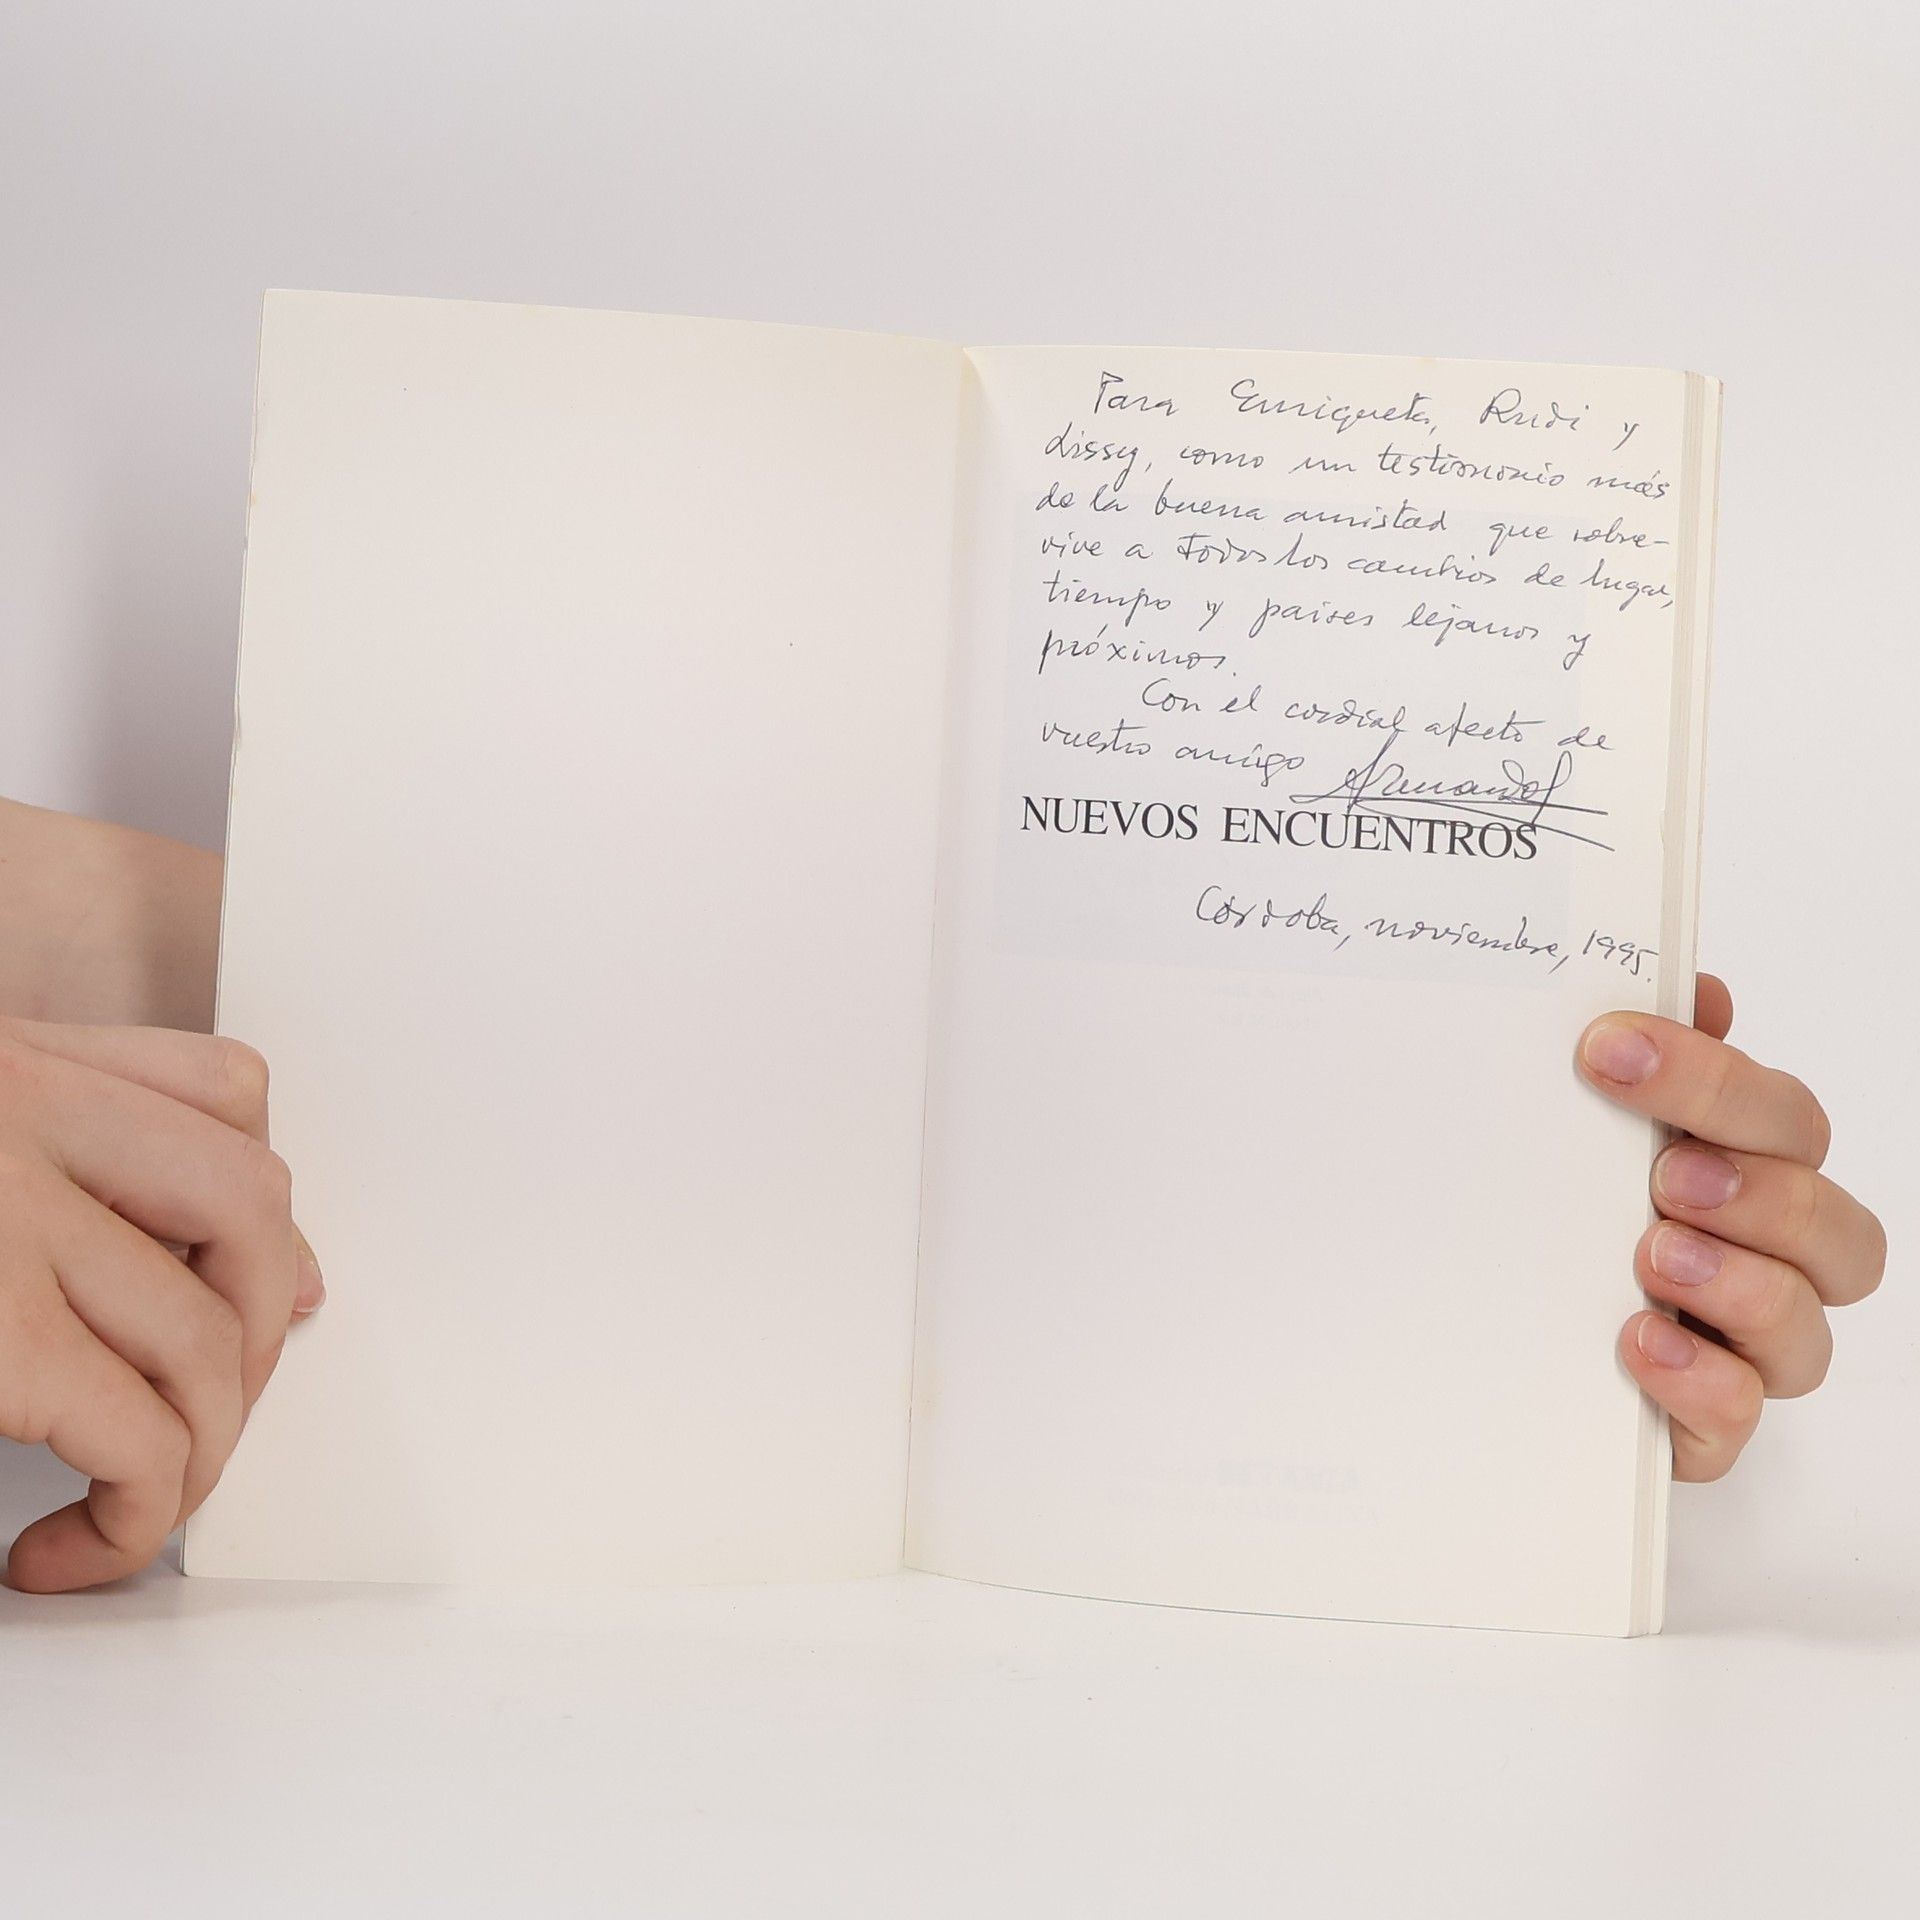 Para Enriqueta, Rudi y
Lissy, como un testimonio más
de la buena amistad que sobre-
vive a todos los cambios de lugar,
tiempo y paises lejanos y
próximos.
Con el cordial afecto de
vuestro amigo
NUEVOS ENCUENTROS
Córdoba, noviembre, 1995.